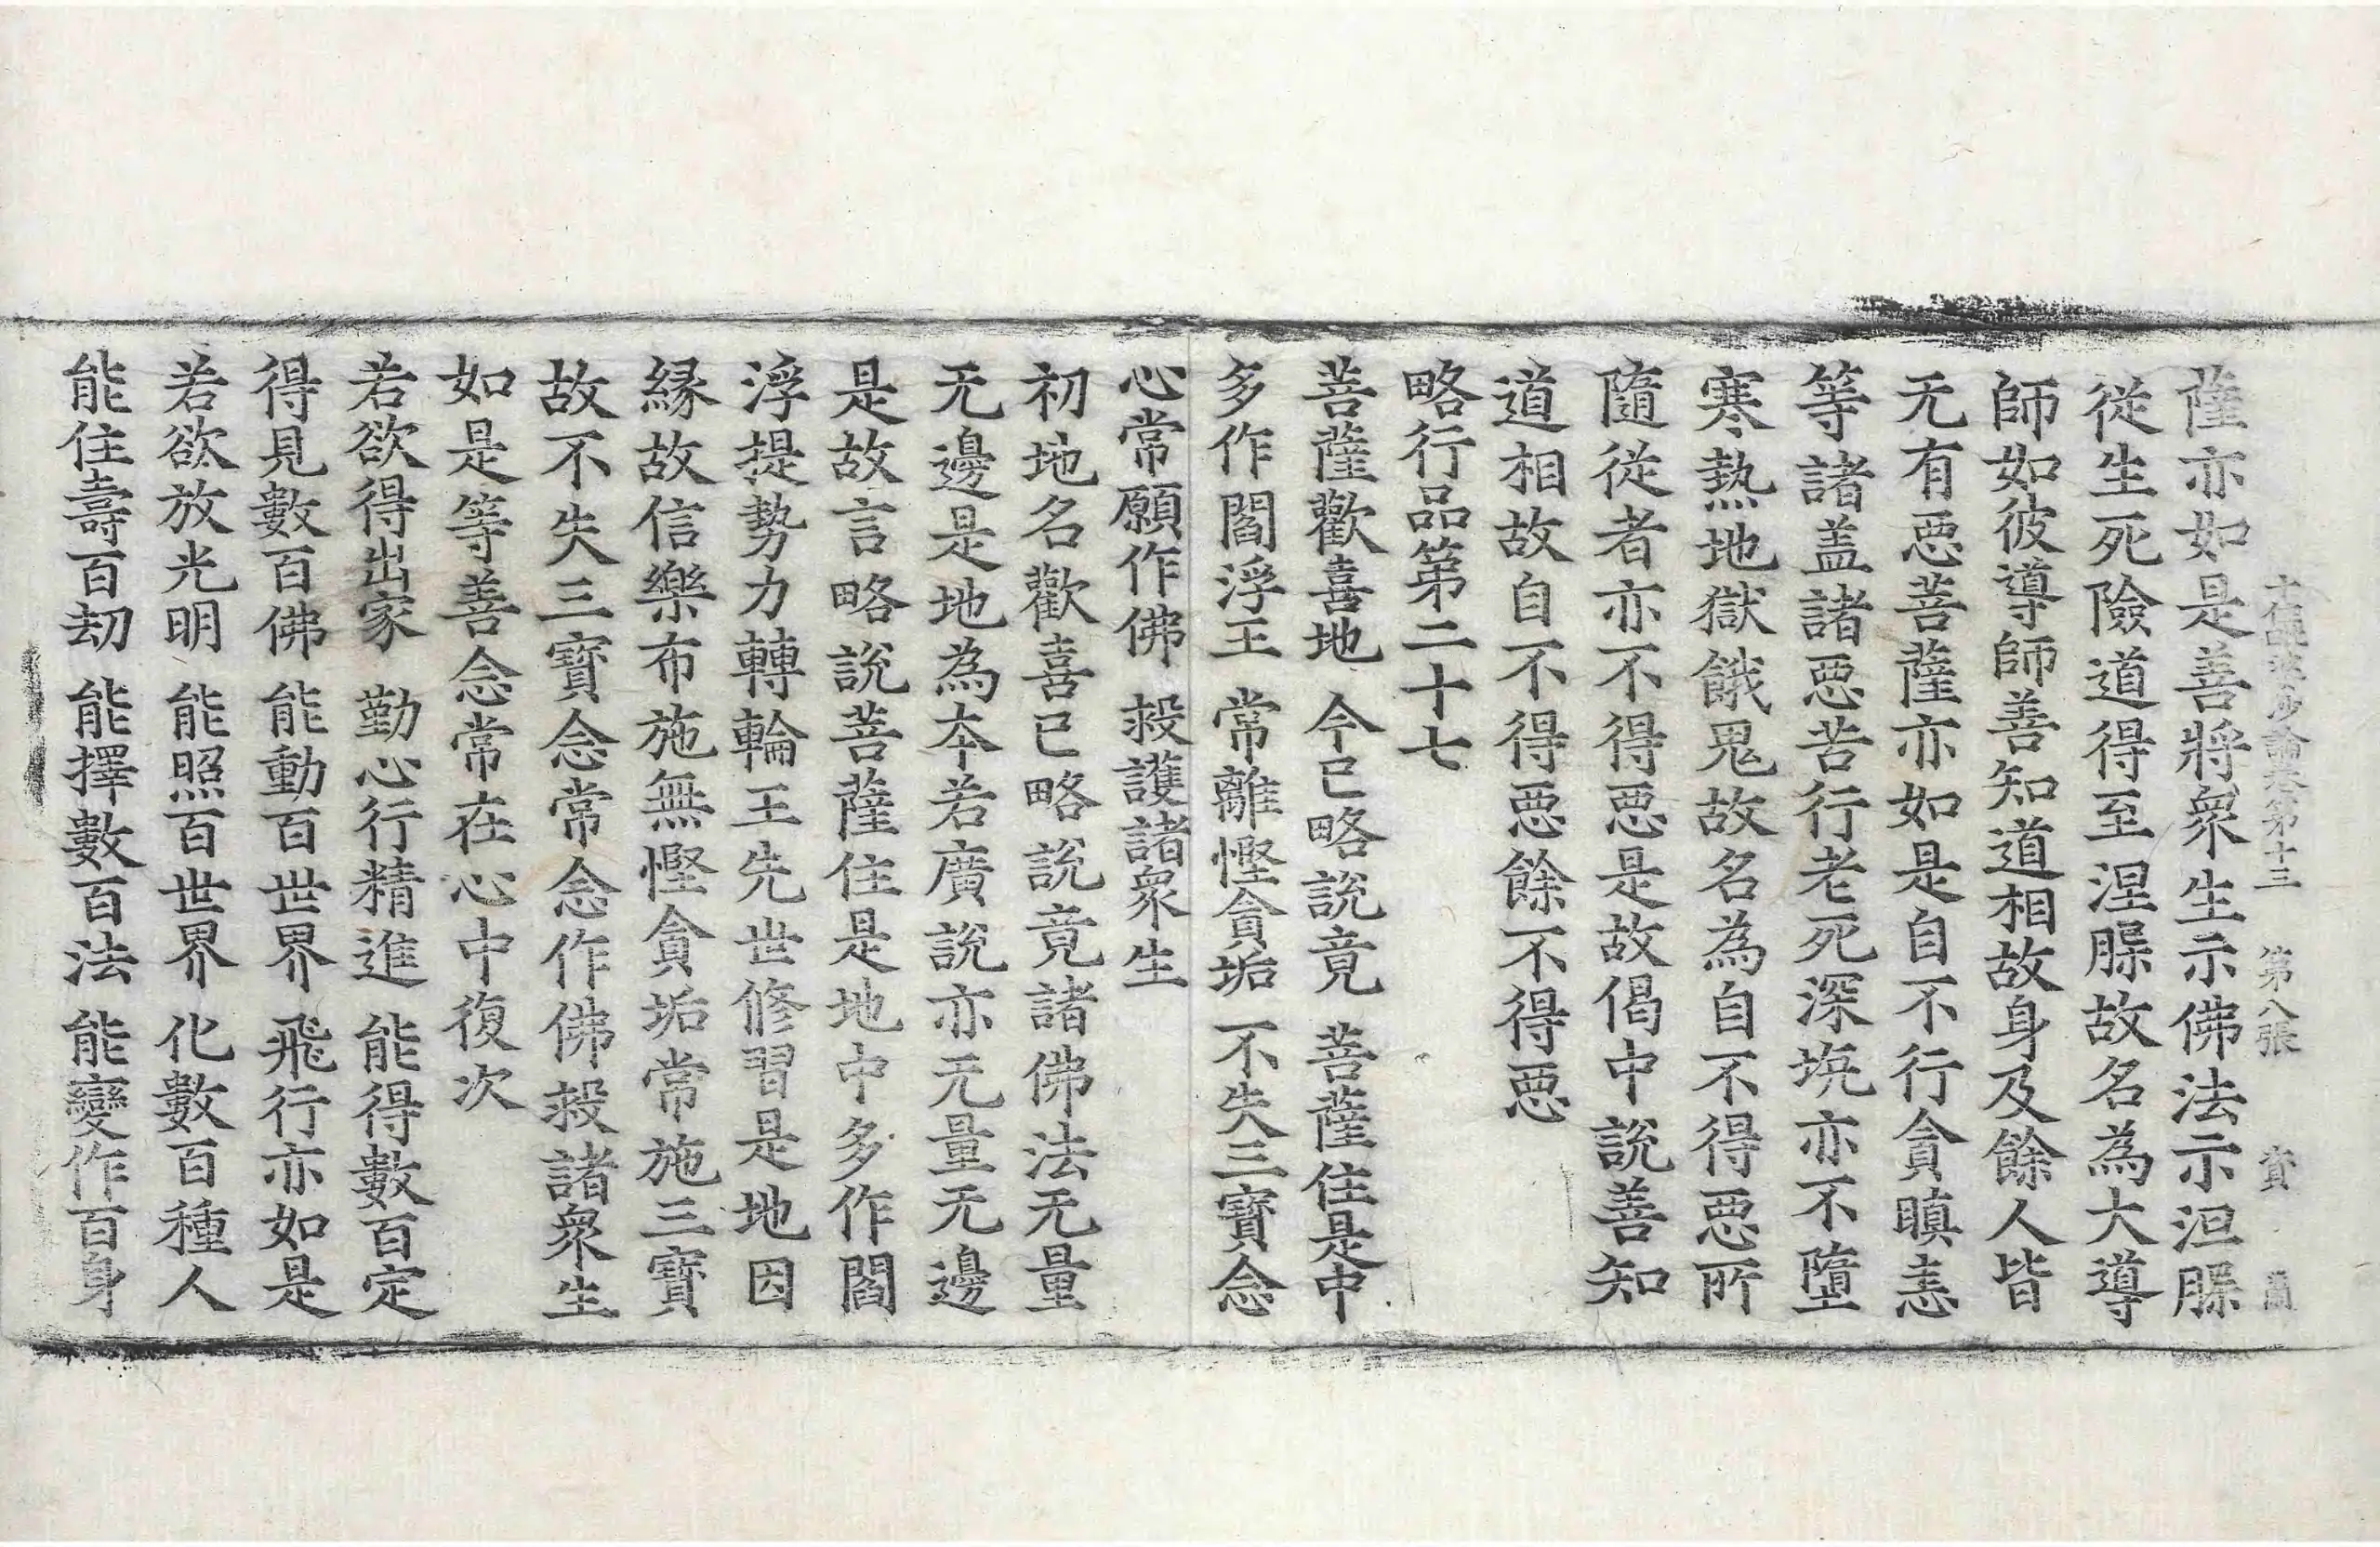 十住毗婆沙論卷第十三 第八張 賓
薩亦如是善將衆生示佛法示洹𦙶
從生死險道得至涅𦙶故名為大導
師如彼導師善知道相故身及餘人皆
无有惡菩薩亦如是自不行貪瞋恚
等諸盖諸惡苦行老死深坑亦不墮
寒熱地獄餓鬼故名為自不得惡所
隨從者亦不得惡是故偈中說善知
道相故自不得惡餘不得惡
略行品第二十七
菩薩歡喜地 今已略說竟 菩薩住是中
多作閻浮王 常離慳貪垢 不失三寶念
心常願作佛 救護諸衆生
初地名歡喜已略說竟諸佛法无量
无邊是地為本若廣說亦无量无邊
是故言略說菩薩住是地中多作閻
浮提勢力轉輪王先世修習是地因
緣故信樂布施無慳貪垢常施三寶
故不失三寶念常念作佛救諸衆生
如是等善念常在心中復次
若欲得出家 勤心行精進 能得數百定
得見數百佛 能動百世界 飛行亦如是
若欲放光明 能照百世界 化數百種人
能住壽百劫 能擇數百法 能變作百身